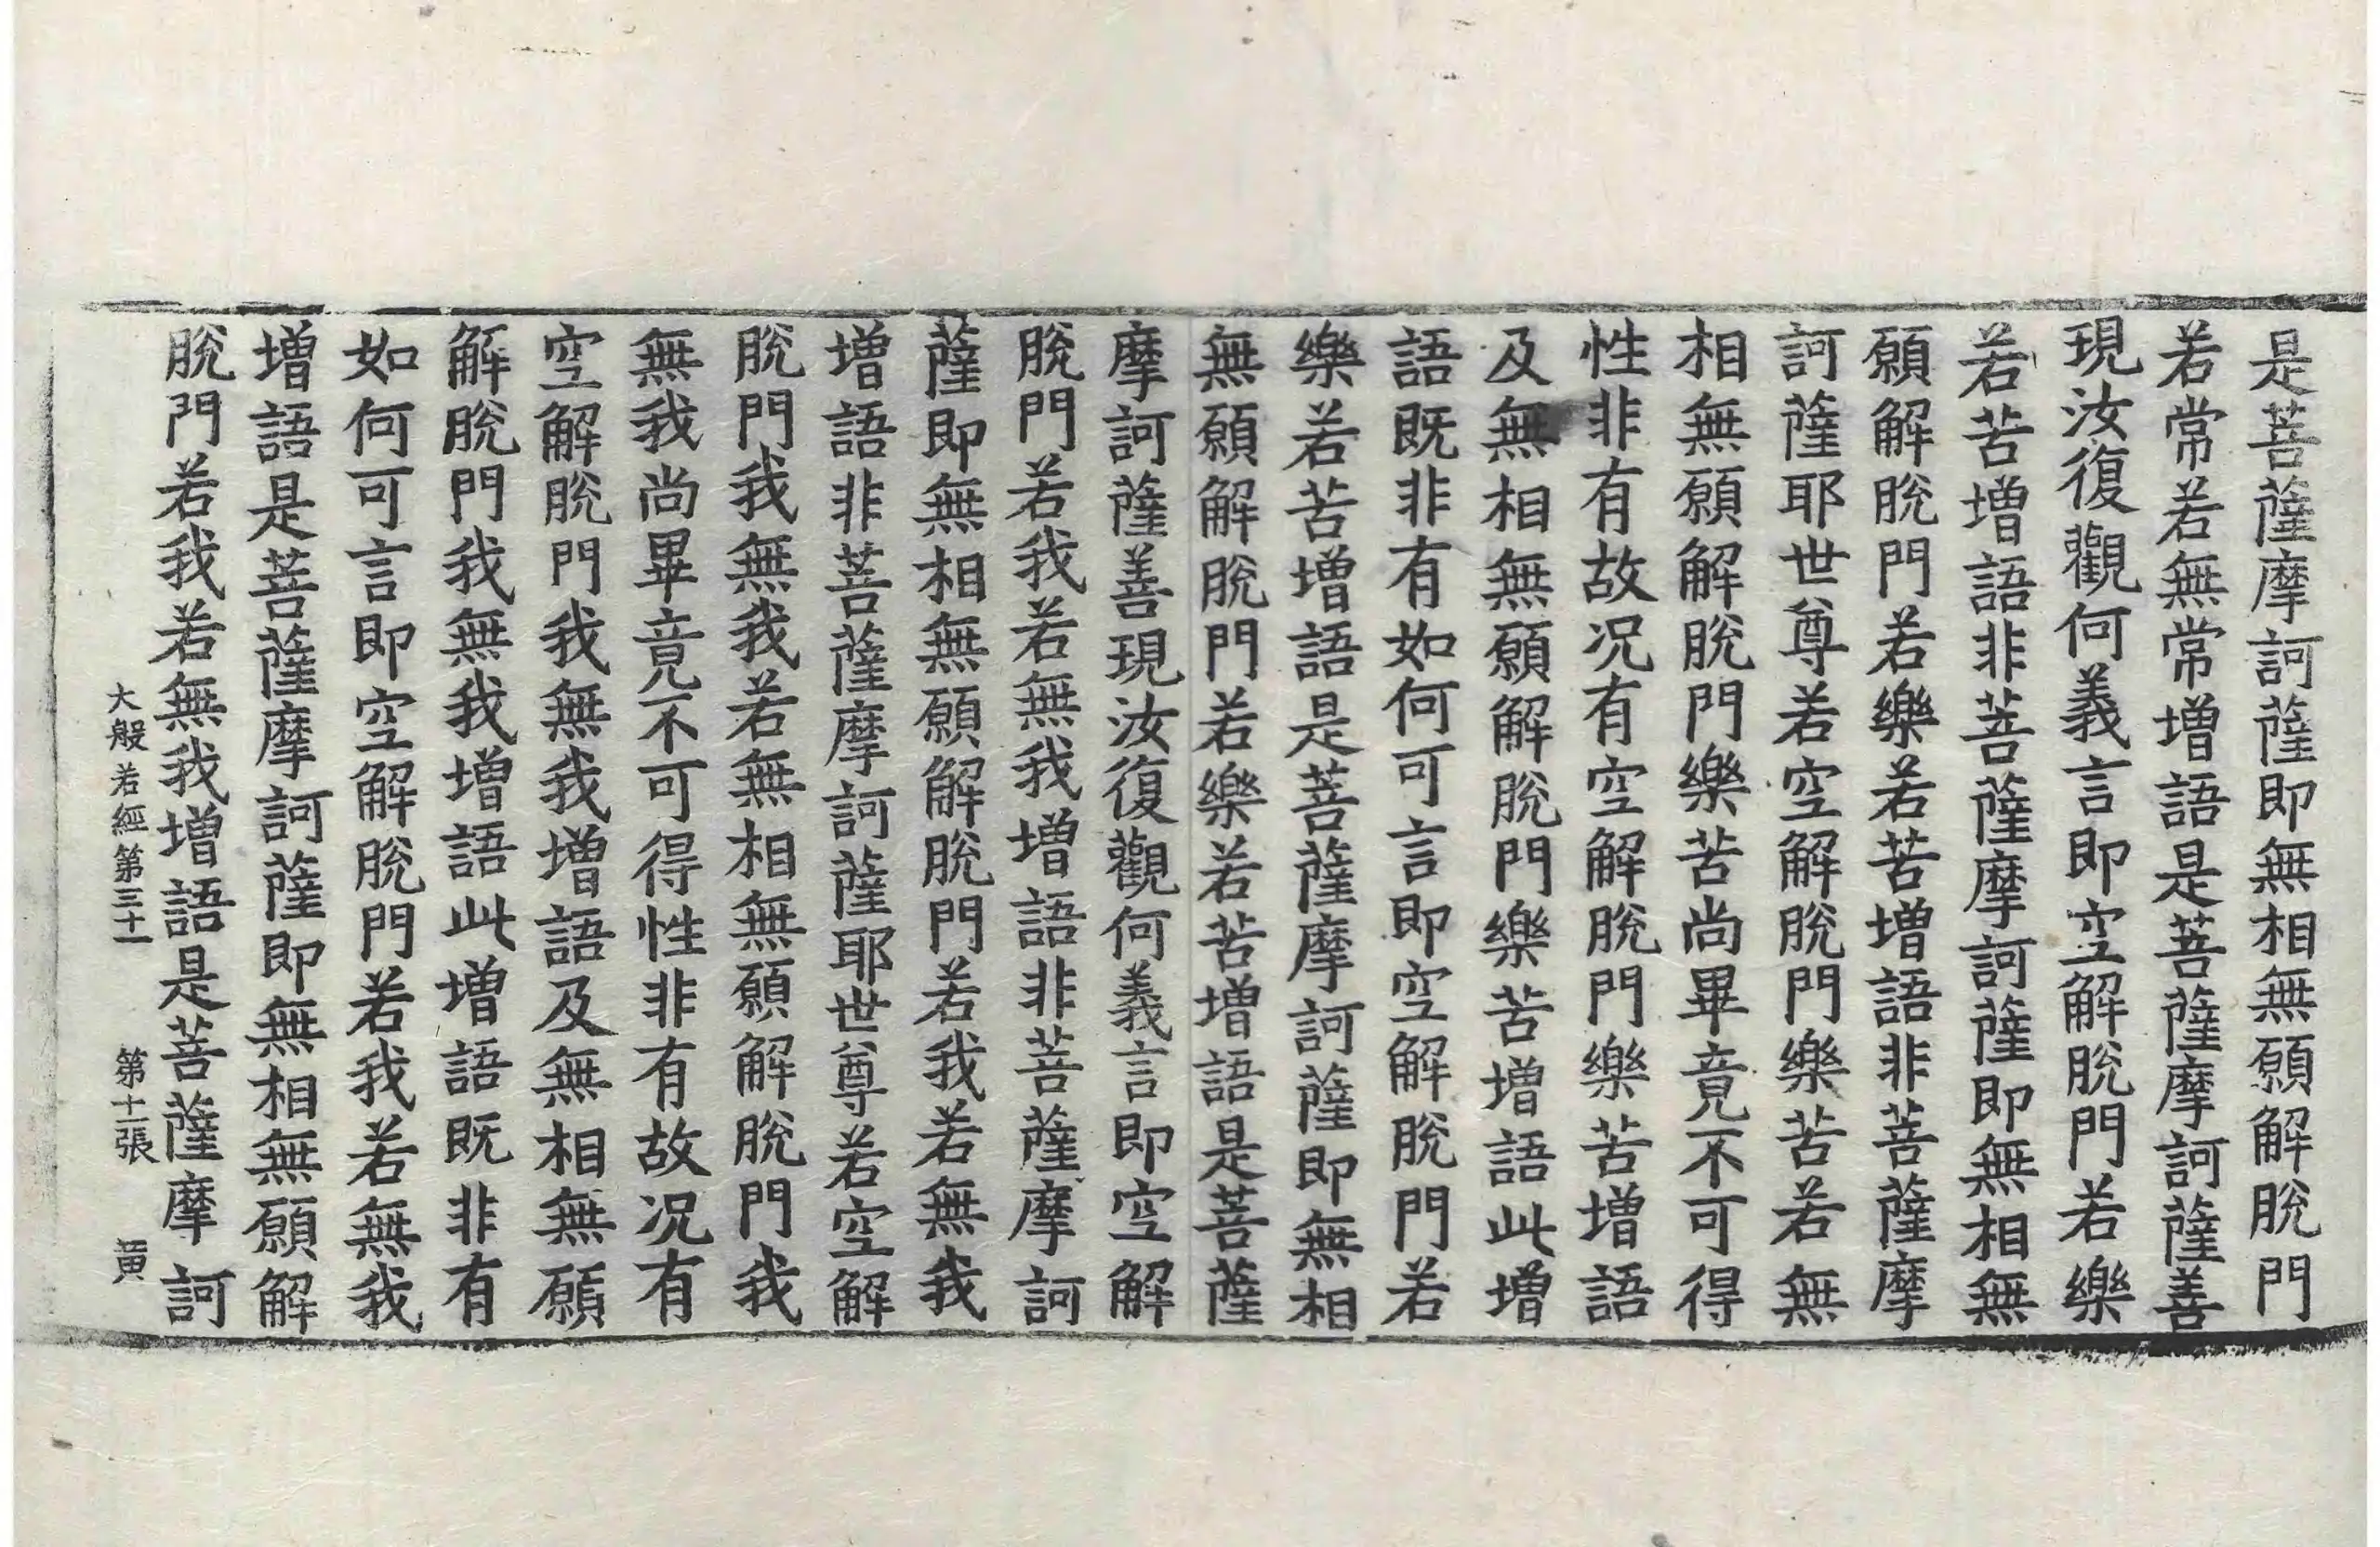 是菩薩摩訶薩即無相無願解脫門
若常若無常增語是菩薩摩訶薩善
現汝復觀何義言即空解脫門若樂
若苦增語非菩薩摩訶薩即無相無
願解脫門若樂若苦增語非菩薩摩
訶薩耶世尊若空解脫門樂苦若無
相無願解脫門樂苦尚畢竟不可得
性非有故况有空解脫門樂苦增語
及無相無願解脫門樂苦增語此增
語既非有如何可言即空解脫門若
樂若苦增語是菩薩摩訶薩即無相
無願解脫門若樂若苦增語是菩薩
摩訶薩善現汝復觀何義言即空解
脫門若我若無我增語非菩薩摩訶
薩即無相無願解脫門若我若無我
增語非菩薩摩訶薩耶世尊若空解
脫門我無我若無相無願解脫門我
無我尚畢竟不可得性非有故况有
空解脫門我無我增語及無相無願
解脫門我無我增語此增語既非有
如何可言即空解脫門若我若無我
增語是菩薩摩訶薩即無相無願解
脫門若我若無我增語是菩薩摩訶
大般若經第三十一 第十二張 黄